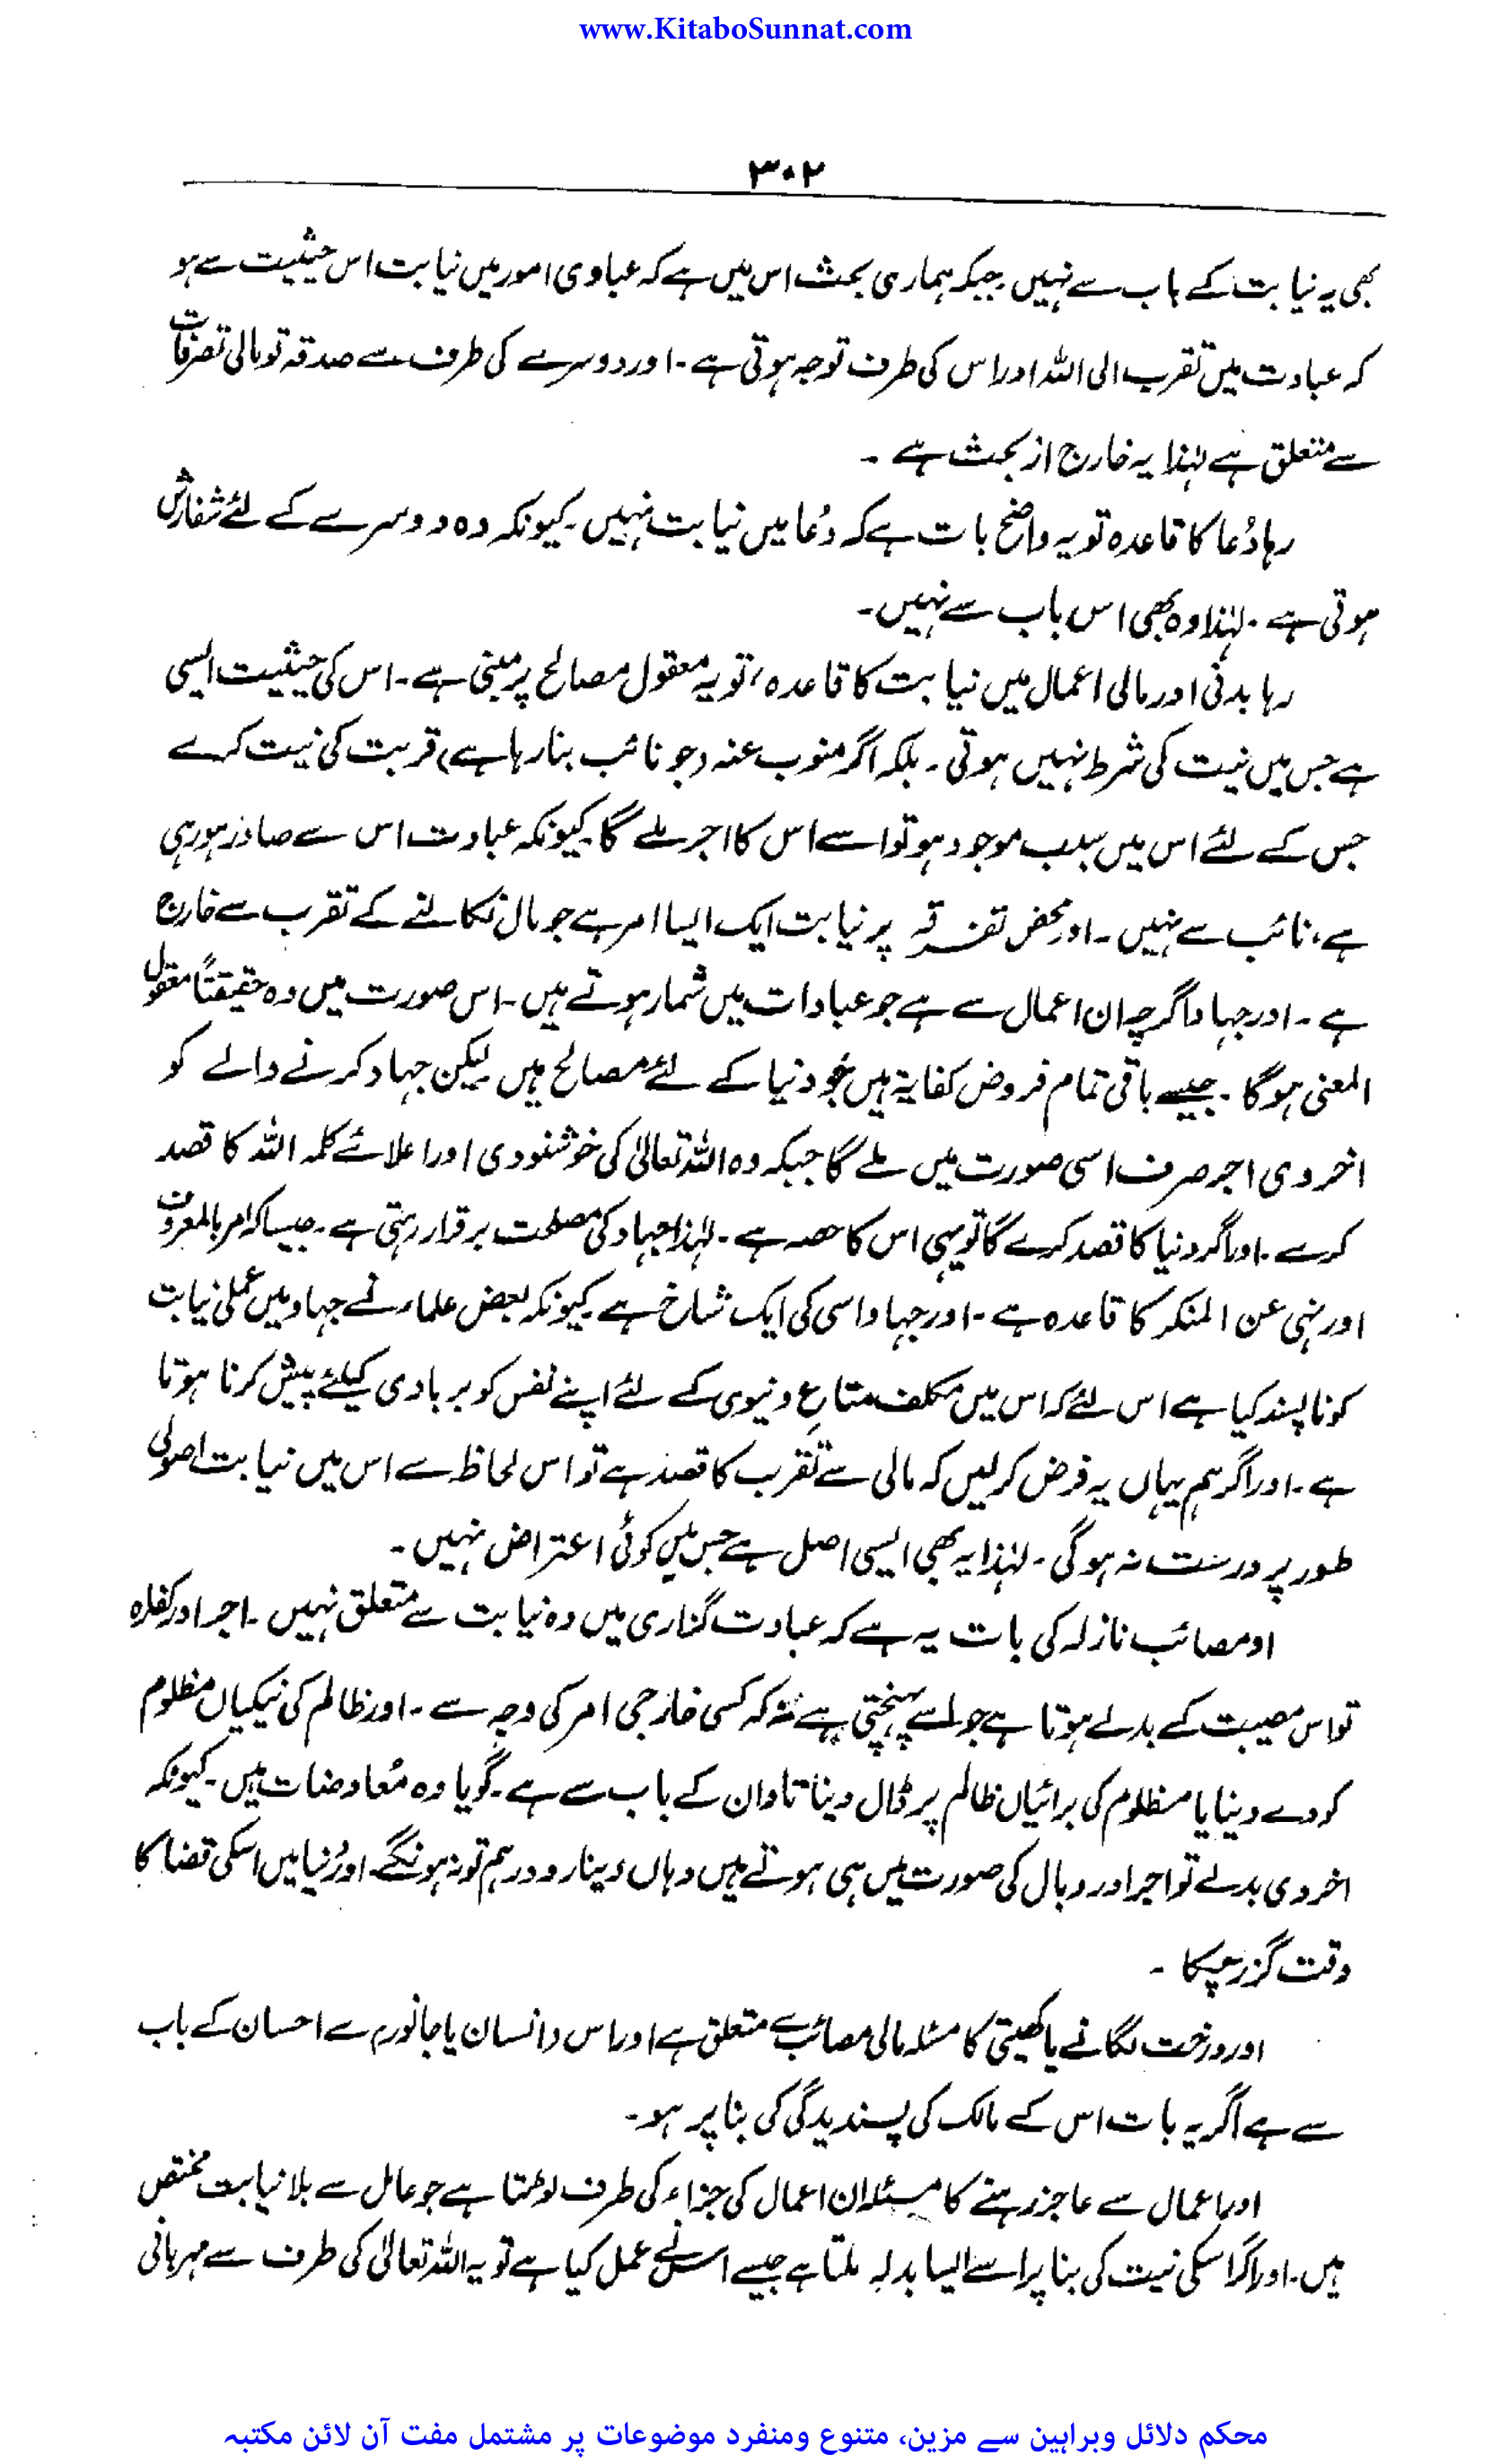 www.KitaboSunnat.com
۳۰۲
بھی یہ نیابت کے باب سے نہیں جبکہ ہماری بحث اس میں ہے کہ عبادی امور میں نیابت اس حیثیت سے ہو
کہ عبادت میں تقرب الی اللہ اور اس کی طرف توجہ ہوتی ہے۔ اور دوسرے کی طرف سے صدقہ تو مالی تصرفات
سے متعلق ہے لہٰذا یہ خارج از بحث ہے ۔
رہا دُعا کا قاعدہ تو یہ واضح بات ہے کہ دُعا میں نیابت نہیں۔ کیونکہ وہ دوسرے کے لئے شفارش
ہوتی ہے ۔ لہٰذا وہ بھی اس باب سے نہیں۔
رہا بدنی اور مالی اعمال میں نیابت کا قاعدہ، تو یہ معقول مصالح پر مبنی ہے۔ اس کی حیثیت ایسی
ہے جس میں نیت کی شرط نہیں ہوتی ۔ بلکہ اگر منوب عنہ (جو نائب بنا رہا ہے) قربت کی نیت کرے
جس کے لئے اس میں سبب موجود ہو تو اسے اس کا اجر ملے گا کیونکہ عبادت اس سے صادر ہو رہی
ہے، نائب سے نہیں ۔ اور محض تفرقہ پر نیابت ایک ایسا امر ہے جو مال نکالنے کے تقرب سے خارج
ہے ۔ اور جہاد اگرچہ ان اعمال سے ہے جو عبادات میں شمار ہوتے ہیں۔ اس صورت میں وہ حقیقتاً معقول
المعنی ہوگا ۔ جیسے باقی تمام فروض کفایۃ ہیں جو دنیا کے لئے مصالح ہیں لیکن جہاد کرنے والے کو
اخروی اجر صرف اسی صورت میں ملے گا جبکہ وہ اللہ تعالیٰ کی خوشنودی اور اعلائے کلمہ اللہ کا قصد
کرے ۔ اور اگر دنیا کا قصد کرے گا تو یہی اس کا حصہ ہے ۔ لہٰذا جہاد کی مصلحت برقرار رہتی ہے ۔ جیسا کہ امر بالمعروف
اور نہی عن المنکر کا قاعدہ ہے ۔ اور جہاد اسی کی ایک شاخ ہے کیونکہ بعض علماء نے جہاد میں عملی نیابت
کو ناپسند کیا ہے اس لئے کہ اس میں مکلف متاعِ دنیوی کے لئے اپنے نفس کو بربادی کیلئے پیش کرنا ہوتا
ہے ۔ اور اگر ہم یہاں یہ فرض کر لیں کہ مالی سے تقرب کا قصد ہے تو اس لحاظ سے اس میں نیابت اصولی
طور پر درست نہ ہوگی ۔ لہٰذا یہ بھی ایسی اصل ہے جس میں کوئی اعتراض نہیں ۔
او مصائب نازلہ کی بات یہ ہے کہ عبادت گزاری میں وہ نیابت سے متعلق نہیں ۔ اجر اور کفارہ
تو اس مصیبت کے بدلے ہوتا ہے جو اسے پہنچتی ہے نہ کہ کسی خارجی امر کی وجہ سے ۔ اور ظالم کی نیکیاں مظلوم
کو دے دینا یا مظلوم کی برائیاں ظالم پر ڈال دینا تاوان کے باب سے ہے۔ گویا وہ مُعاوضات ہیں۔ کیونکہ
اخروی بدلے تو اجر اور وبال کی صورت میں ہی ہوتے ہیں وہاں دینار و درہم تو نہ ہونگے۔ اور دُنیا میں اسکی قضا کا
وقت گزر چکا ۔
اور درخت لگانے یا کھیتی کا مسئلہ مالی مصائب سے متعلق ہے اور اس (انسان یا جانور) سے احسان کے باب
سے ہے اگر یہ بات اس کے مالک کی پسندیدگی کی بنا پر ہو۔
اور اعمال سے عاجز رہنے کا مسئلہ ان اعمال کی جزاء کی طرف لوٹتا ہے جو عامل سے بلا نیابت مختص
ہیں۔ اور اگر اسکی نیت کی بنا پر اسے ایسا بدلہ ملتا ہے جیسے اس نے عمل کیا ہے تو یہ اللہ تعالیٰ کی طرف سے مہربانی
محکم دلائل وبراہین سے مزین، متنوع ومنفرد موضوعات پر مشتمل مفت آن لائن مکتبہ